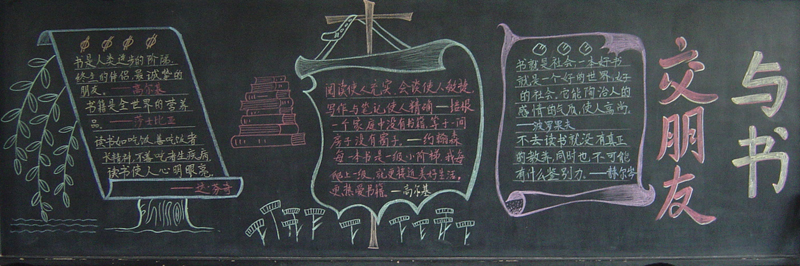 与书
交朋友
书是人类进步的阶梯,
终生的伴侣,最诚挚的
朋友。——高尔基
书籍是全世界的营养
品。——莎士比亚
读书如吃饭,善吃者
长精神,不善吃者生疾病。
读书使人心明眼亮。
阅读使人充实,会谈使人敏捷,
写作与笔记使人精确——培根
一个家庭中没有书籍,等于一间
房子没有窗子。——约翰森
每一本书是一级小阶梯,我每
爬上一级,就更接近美好生活,
更热爱书籍。——高尔基
书就是社会,一本好书
就是一个好的世界,好
的社会,它能陶冶人的
感情与气质,使人高尚。
——波罗果夫
不去读书就没有真正
的教养,同时也不可能
有什么鉴别力。——赫尔岑